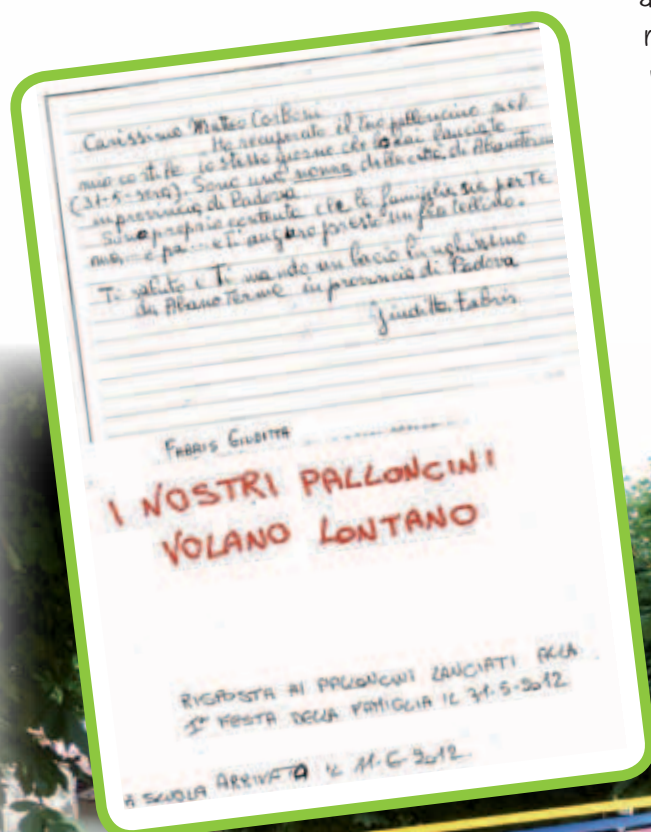 a
r
Carissimo Matteo Corboni
Ho recuperato il tuo palloncino nel
mio cortile lo stesso giorno che lo hai lanciato
(31-5-2012). Sono una nonna della città di Abano Terme
in provincia di Padova
Sono proprio contenta che la famiglia sia per Te
e Ti auguro presto un fratellino.
Ti saluto e Ti mando un bacio lunghissimo
da Abano Terme in provincia di Padova
Giuditta Fabris
FABRIS GIUDITTA
I NOSTRI PALLONCINI
VOLANO LONTANO
RISPOSTA AI PALLONCINI LANCIATI ALLA
1ª FESTA DELLA FAMIGLIA IL 31-5-2012
A SCUOLA ARRIVATA IL 11-6-2012